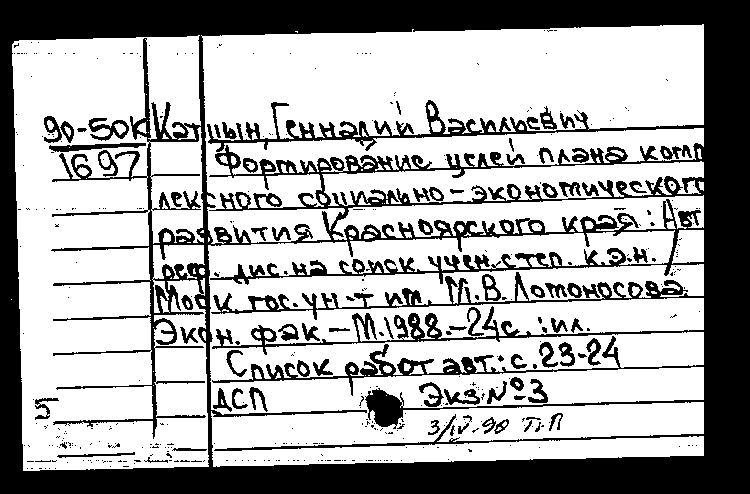 90-50К Катцын Геннадий Васильевич
1697 Формирование целей плана комп
лексного социально-экономического
развития Красноярского края : Авт
реф. дис. на соиск. учен. степ. к.э.н. /
Моск. гос. ун-т им. М.В. Ломоносова.
Экон. фак. – М. 1988. – 24 с. : ил.
Список работ авт.: с. 23-24
5 ДСП Экз №3
3/IV.90 Т.П